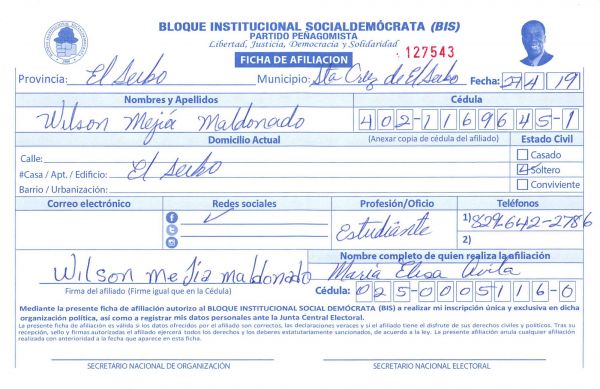 BLOQUE INSTITUCIONAL SOCIALDEMÓCRATA (BIS)
PARTIDO PEÑAGOMISTA
Libertad, Justicia, Democracia y Solidaridad
FICHA DE AFILIACION
127543
Provincia: El Seibo Municipio: Sta Cruz de El Seibo Fecha: 27 4 19
Nombres y Apellidos Cédula
Wilson Mejía Maldonado 402-1169645-1
Domicilio Actual (Anexar copia de cédula del afiliado) Estado Civil
Calle: Casado
#Casa / Apt. / Edificio: El Seibo Soltero
Barrio / Urbanización: Conviviente
Correo electrónico Redes sociales Profesión/Oficio Teléfonos
Estudiante 1) 829-642-2786
2)
Nombre completo de quien realiza la afiliación
Wilson mejia maldonado Maria Elisa Avila
Firma del afiliado (Firme igual que en la Cédula) Cédula: 025-0005116-0
Mediante la presente ficha de afiliación autorizo al BLOQUE INSTITUCIONAL SOCIAL DEMÓCRATA (BIS) a realizar mi inscripción única y exclusiva en dicha
organización política, así como a registrar mis datos personales ante la Junta Central Electoral.
La presente ficha de afiliación es válida si los datos ofrecidos por el afiliado son correctos, las declaraciones veraces y si el afiliado tiene el disfrute de sus derechos civiles y políticos. Tras su
recepción, sello y firmas autorizadas el afiliado ejercerá todos los derechos y los deberes estatutariamente sancionados, de acuerdo a la ley. La presente afiliación anula cualquier afiliación
realizada con anterioridad a la fecha que aparece en esta ficha.
SECRETARIO NACIONAL DE ORGANIZACIÓN SECRETARIO NACIONAL ELECTORAL